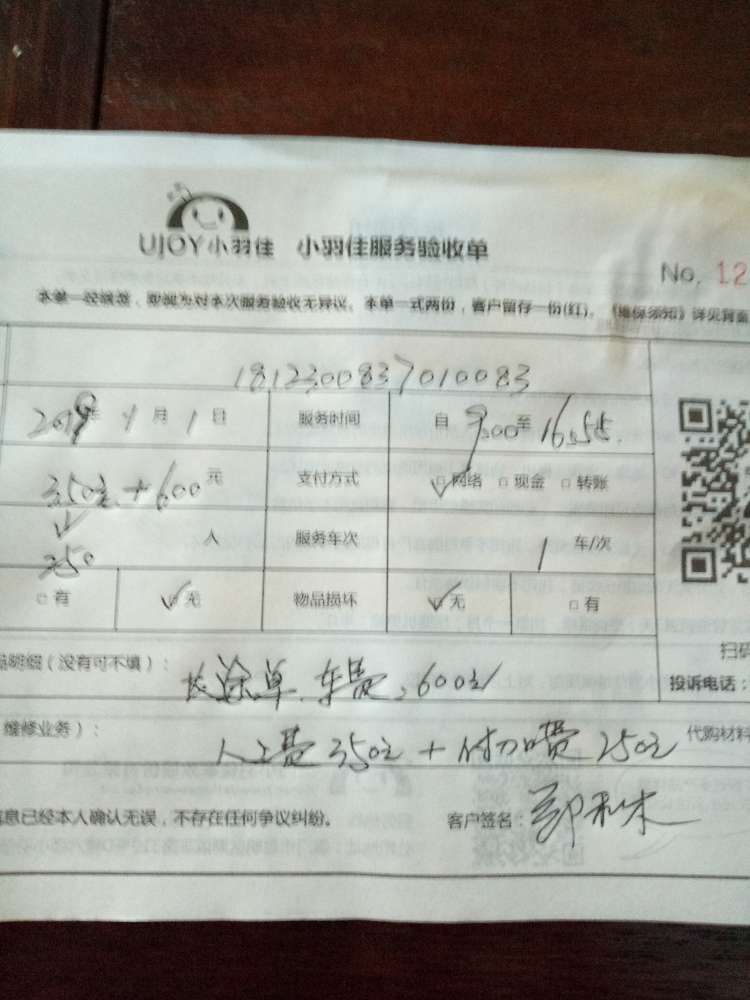 UJOY小羽佳 小羽佳服务验收单
No. 12
本单一经签签，即视为对本次服务验收无异议。本单一式两份，客户留存一份(红)。《维保须知》详见背面
1812300837010083
2019年 1月 1日 服务时间 自 9:00至 16:55
350元+600元 支付方式 网络 现金 转账
250 人 服务车次 1 车/次
有 无 物品损坏 无 有
扫码
品明细（没有可不填）： 长途单. 车费:600元 投诉电话：
维修业务）： 人工费350元+ 费250元 代购材料
信息已经本人确认无误，不存在任何争议纠纷。 客户签名：